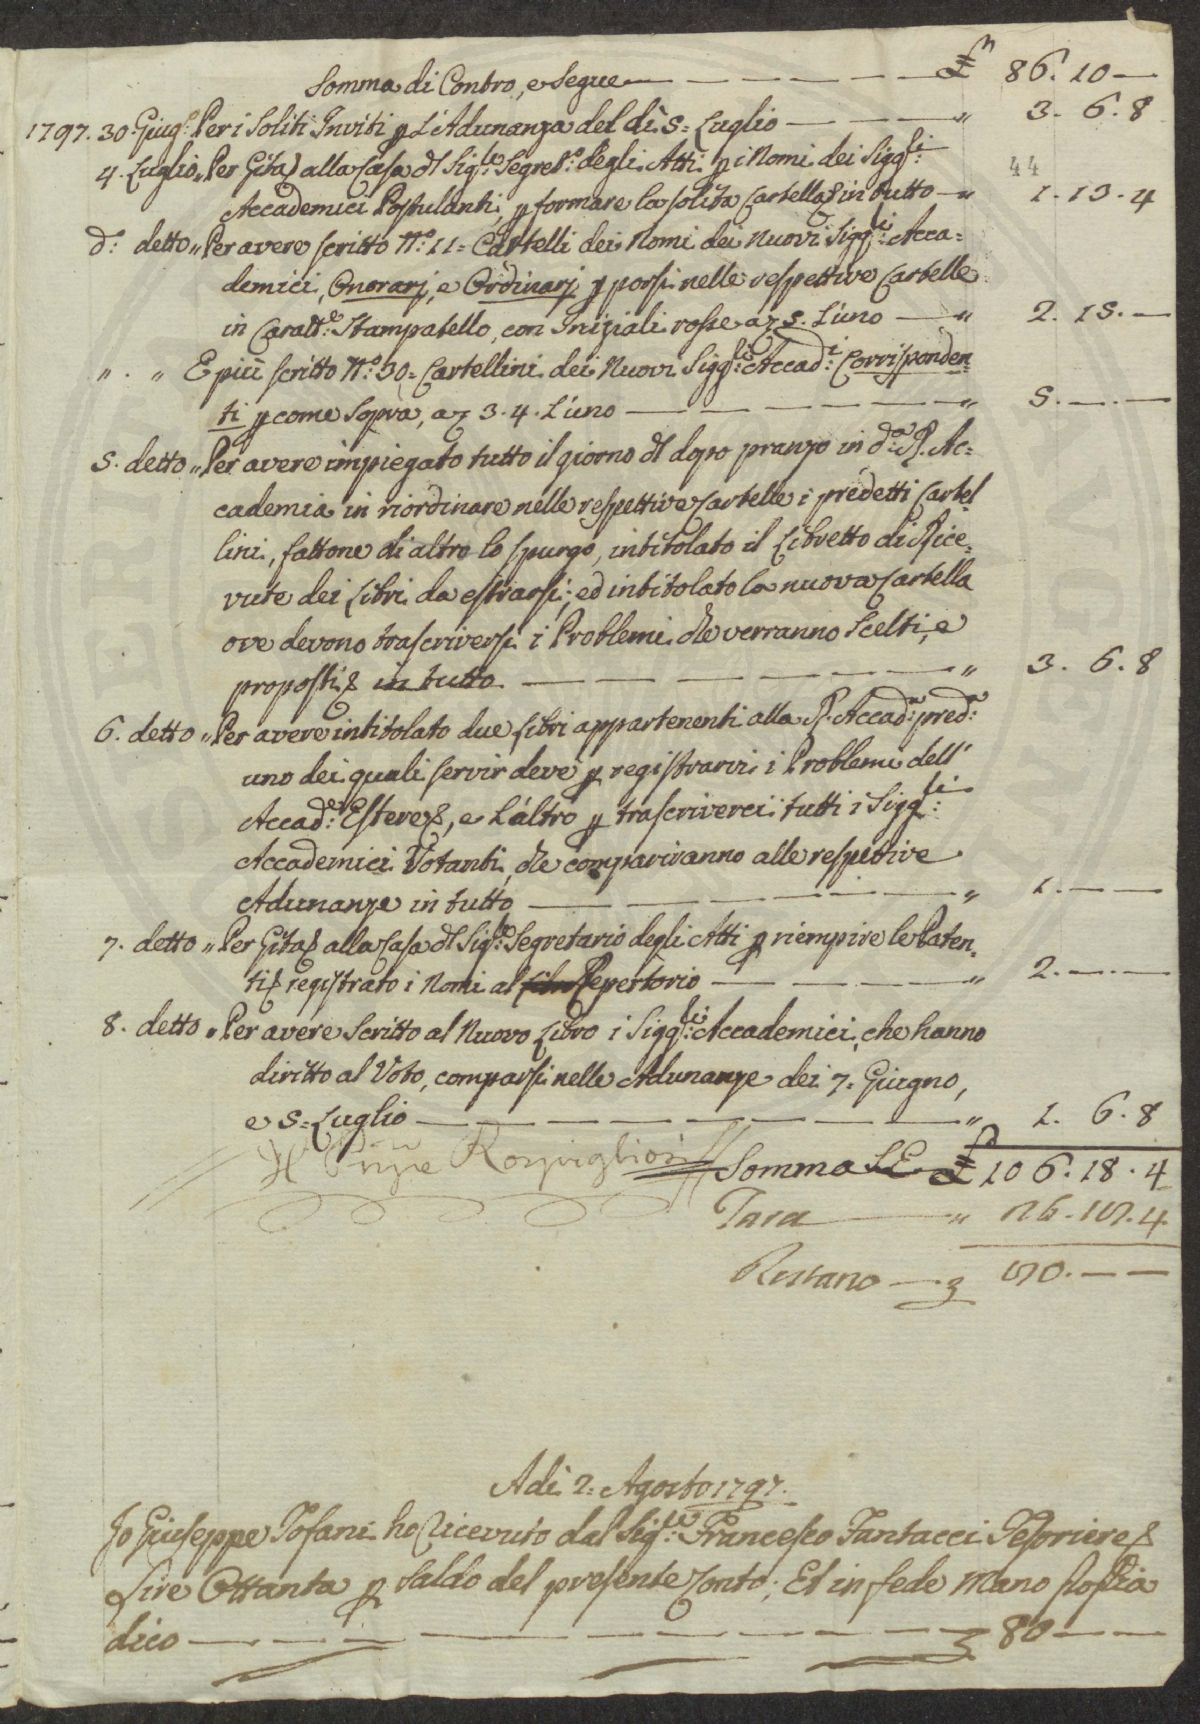 Somma di Contro, e Segue — — — — — — £ 86. 10 —
1797. 30. Giug.o Per i Soliti Inviti p L'Adunanza del dì 5= Luglio — — — " 3. 6. 8
44
4. Luglio " Per Gita alla Casa dl Sig.le Segret.o degli Atti p i Nomi dei Sigg.li
Accademici Postulanti, p formare la solita Cartella& in tutto — " 1. 13. 4
d.o detto " Per avere scritto N.o 11= Cartelli dei Nomi dei Nuovi Sigg.li Acca=
demici, Onorarj, e Ordinarj p porsi nelle respettive Cartelle
in Caratt.e Stampatello, con Iniziali rosse a 5. L'uno — " 2. 15. —
" . " E più scritto N.o 30= Cartellini dei Nuovi Sigg.li Accad.i Corrisponden=
ti p come Sopra, a 3. 4. L'uno — — — — — — " 5. — . —
5. detto " Per avere impiegato tutto il giorno dl dopo pranzo in d.a R. Ac=
cademia in riordinare nelle respettive Cartelle i predetti Cartel
lini, fattone di altro lo spurgo, intitolato il Libretto di Rice=
vute dei Libri da estrarsi; ed intitolato la nuova Cartella
ove devono trascriversi i Problemi che verranno Scelti, e
proposti& in tutto — — — — — — — " 3. 6. 8
6. detto " Per avere intitolato due Libri appartenenti alla R. Accad.a pred.a
uno dei quali servir deve p registrarvi i Problemi dell'
Accad.e Estere&, e L'altro p trascriverci tutti i Sigg.li
Accademici Votanti, che compariranno alle respettive
Adunanze in tutto — — — — — — — " 1. — . —
7. detto " Per Gita& alla Casa dl Sig.le Segretario degli Atti p riempire le Paten=
ti& registrato i Nomi al Repertorio — — — — — " 2. — . —
8. detto " Per avere Scritto al Nuovo Libro i Sigg.li Accademici, che hanno
diritto al Voto, comparsi nelle Adunanze dei 7= Giugno,
e 5= Luglio — — — — — — — — " 1. 6. 8
Rospigliosi Somma S.E. £ 106. 18. 4
Tara — " 26. 18. 4
Restano — 80. — —
Adì 2= Agosto 1797.
Io Giuseppe Tofani ho Ricevuto dal Sig.le Francesco Tantacci Tesoriere&
Lire Ottanta p saldo del presente Conto; Et in fede Mano propria
dico — — — — — — — — 80 — —